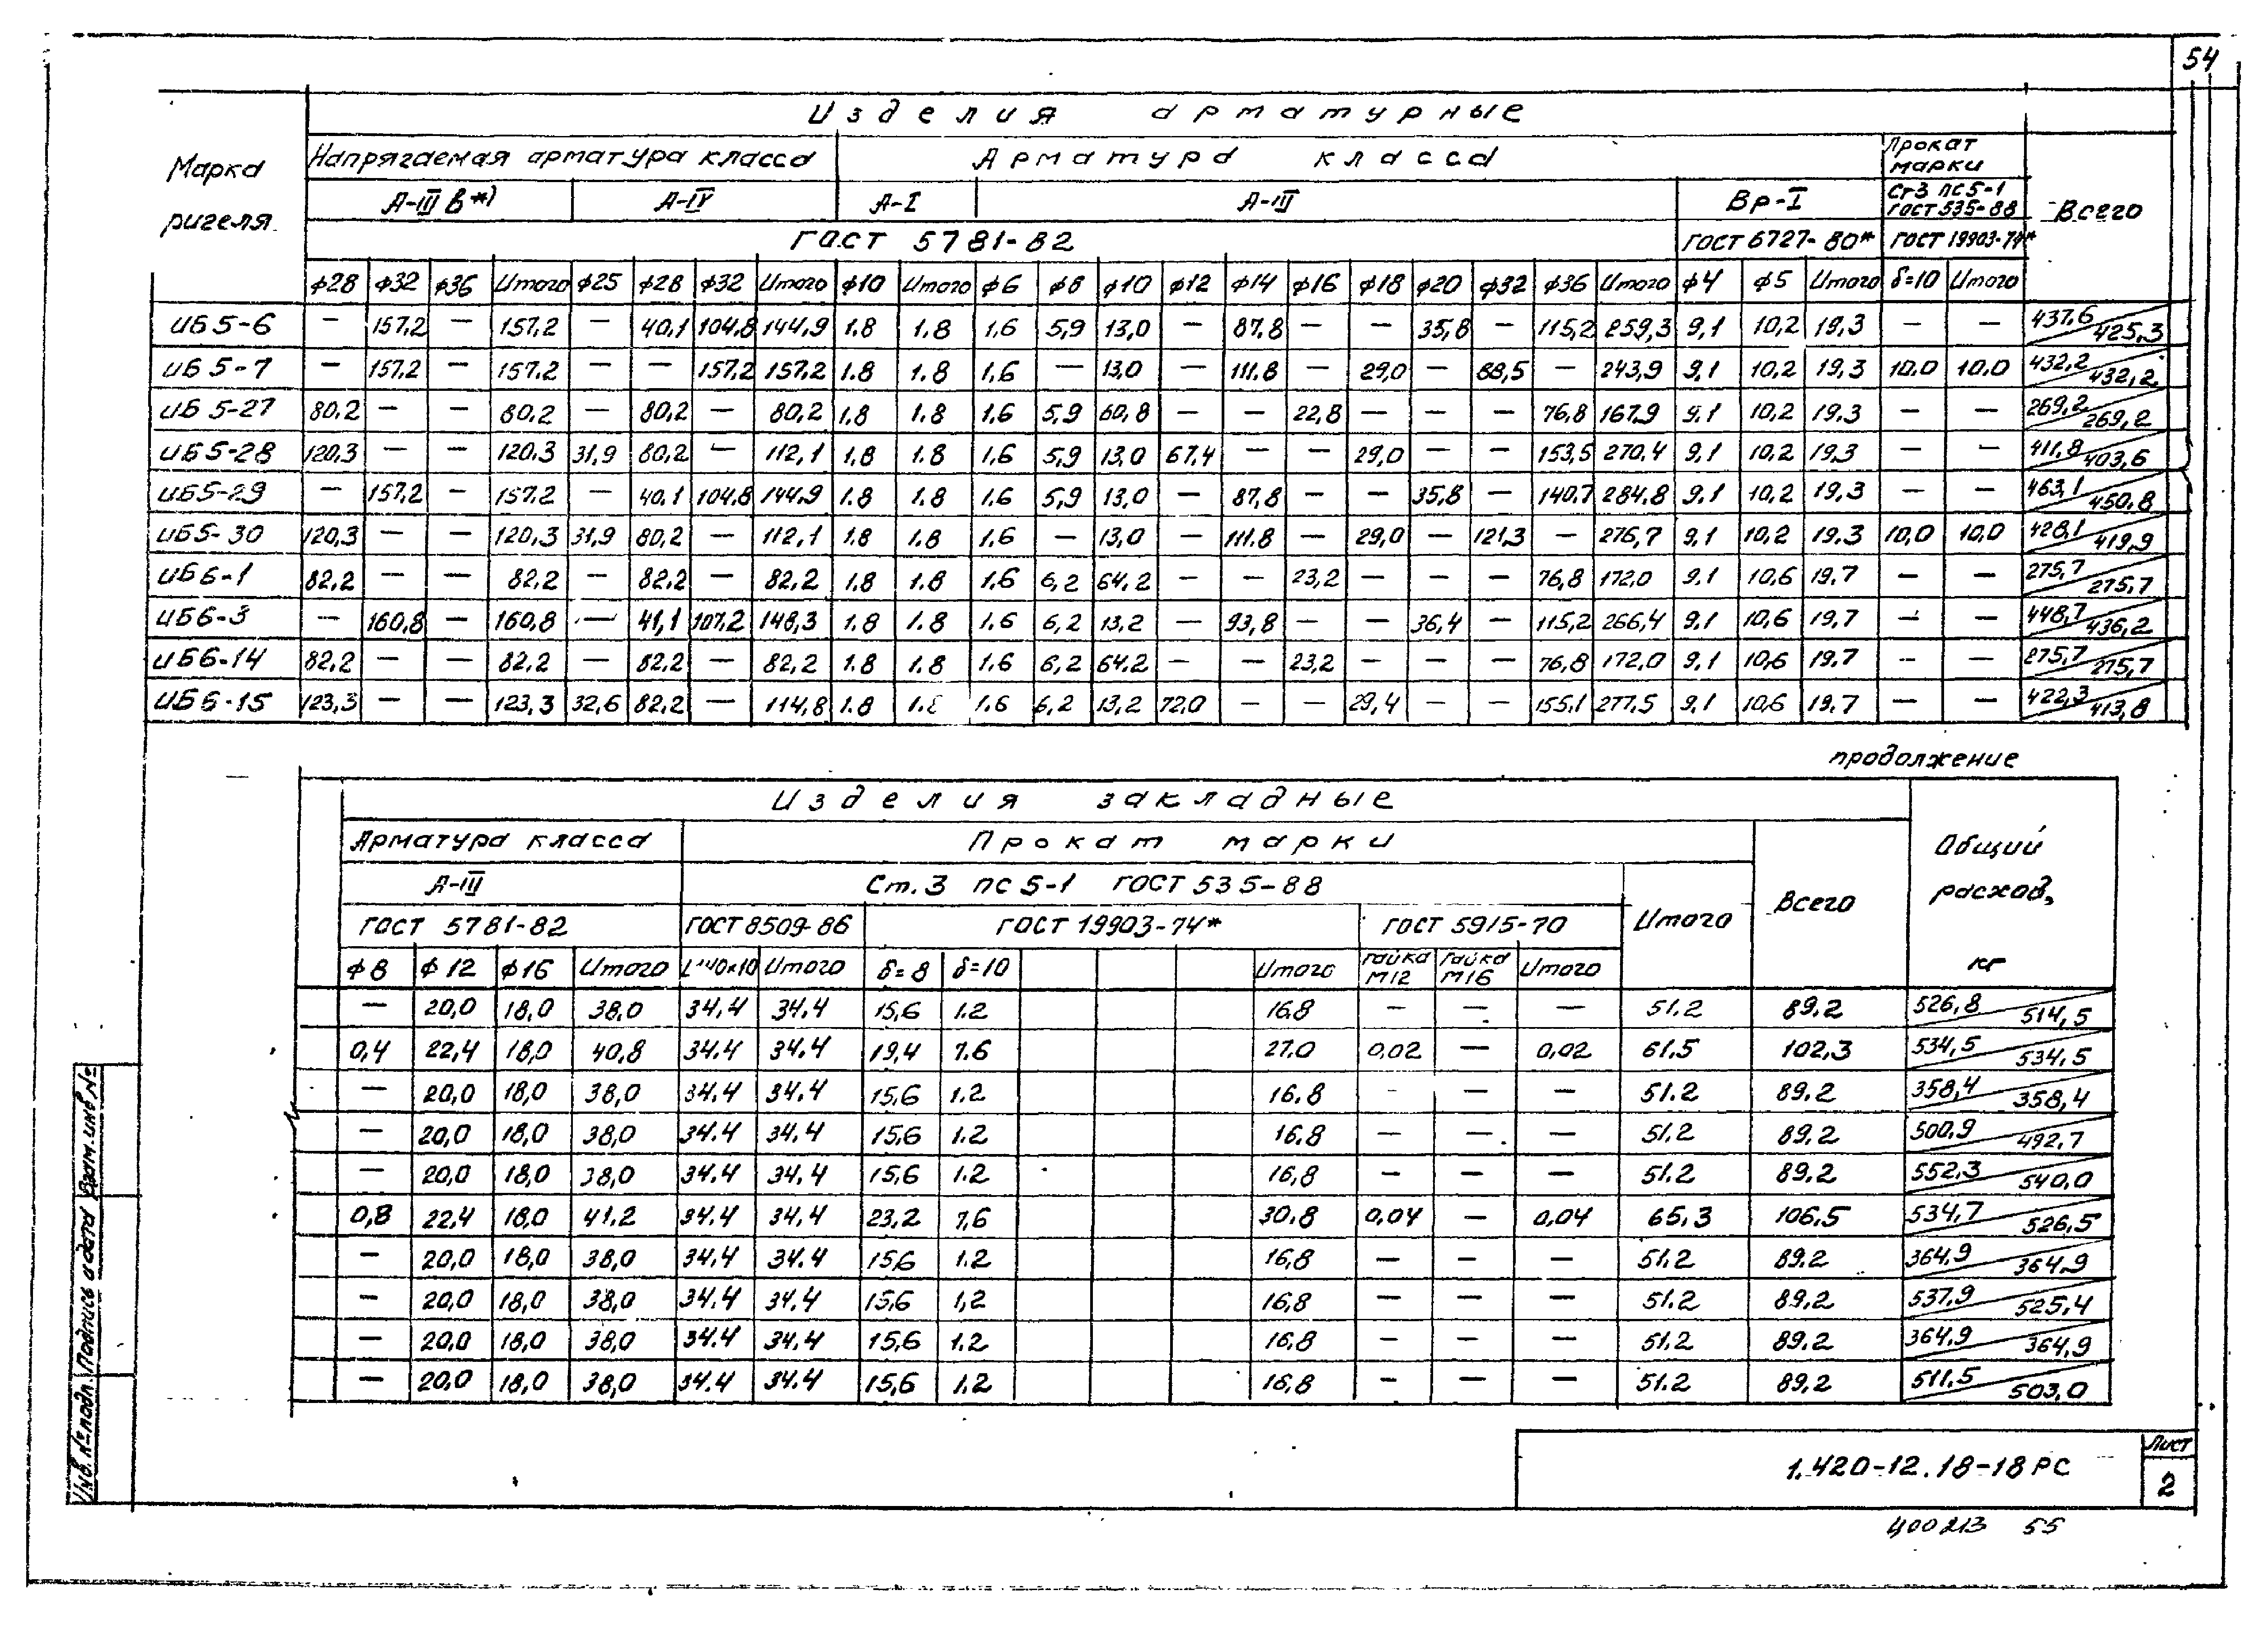 54
Изделия арматурные
Марка ригеля
Напрягаемая арматура класса
Арматура класса
Прокат марки
А-III в*)
А-IV
А-I
А-III
Вр-I
Ст3 пс 5-1 ГОСТ 535-88
Всего
ГОСТ 5781-82
ГОСТ 6727-80*
ГОСТ 19903-74*
ф28 ф32 ф36 Итого ф25 ф28 ф32 Итого ф10 Итого ф6 ф8 ф10 ф12 ф14 ф16 ф18 ф20 ф32 ф36 Итого ф4 ф5 Итого δ=10 Итого
ИБ5-6 — 157,2 — 157,2 — 40,1 104,8 144,9 1.8 1.8 1,6 5,9 13,0 — 87,8 — — 35,8 — 115,2 259,3 9,1 10,2 19,3 — — 437,6 425,3
ИБ5-7 — 157,2 — 157,2 — — 157,2 157,2 1.8 1.8 1,6 — 13,0 — 111.8 — 29,0 — 88,5 — 243,9 9,1 10,2 19,3 10,0 10,0 432,2 432,2
ИБ5-27 80,2 — — 80,2 — 80,2 — 80,2 1,8 1.8 1,6 5,9 60,8 — — 22,8 — — — 76,8 167,9 9,1 10,2 19,3 — — 269,2 269,2
ИБ5-28 120,3 — — 120,3 31,9 80,2 — 112,1 1,8 1.8 1,6 5,9 13,0 67,4 — — 29,0 — — 153,5 270,4 9,1 10,2 19,3 — — 411,8 403,6
ИБ5-29 — 157,2 — 157,2 — 40,1 104,8 144,9 1.8 1.8 1,6 5,9 13,0 — 87,8 — — 35,8 — 140,7 284,8 9,1 10,2 19,3 — — 463,1 450,8
ИБ5-30 120,3 — — 120,3 31,9 80,2 — 112,1 1.8 1.8 1,6 — 13,0 — 111.8 — 29,0 — 121,3 — 276,7 9,1 10,2 19,3 10,0 10,0 428,1 419,9
ИБ6-1 82,2 — — 82,2 — 82,2 — 82,2 1.8 1.8 1,6 6,2 64,2 — — 23,2 — — — 76,8 172,0 9,1 10,6 19,7 — — 275,7 275,7
ИБ6-3 — 160,8 — 160,8 — 41,1 107,2 148,3 1.8 1.8 1,6 6,2 13,2 — 93,8 — — 36,4 — 115,2 266,4 9,1 10,6 19,7 — — 448,7 436,2
ИБ6-14 82,2 — — 82,2 — 82,2 — 82,2 1.8 1.8 1,6 6,2 64,2 — — 23,2 — — — 76,8 172,0 9,1 10,6 19,7 — — 275,7 275,7
ИБ6-15 123,3 — — 123,3 32,6 82,2 — 114,8 1.8 1.8 1,6 6,2 13,2 72,0 — — 29,4 — — 155,1 277,5 9,1 10,6 19,7 — — 422,3 413,8
продолжение
Изделия закладные
Арматура класса
Прокат марки
Всего
Общий расход, кг
А-III
Ст.3 пс 5-1 ГОСТ 535-88
Итого
ГОСТ 5781-82
ГОСТ 8509-86
ГОСТ 19903-74*
ГОСТ 5915-70
ф8 ф12 ф16 Итого L140х10 Итого δ=8 δ=10 Итого гайка М12 гайка М16 Итого
— 20,0 18,0 38,0 34,4 34.4 15,6 1.2 16,8 — — — 51.2 89.2 526,8 514,5
0,4 22,4 18,0 40,8 34.4 34.4 19,4 7.6 27.0 0,02 — 0,02 61.5 102,3 534,5 534,5
— 20,0 18,0 38,0 34.4 34.4 15,6 1.2 16.8 — — — 51.2 89.2 358,4 358,4
— 20,0 18,0 38,0 34.4 34.4 15,6 1.2 16.8 — — — 51.2 89,2 500,9 492,7
— 20,0 18,0 38,0 34.4 34.4 15,6 1.2 16,8 — — — 51.2 89.2 552,3 540,0
0,8 22,4 18,0 41.2 34.4 34.4 23,2 7,6 30.8 0,04 — 0,04 65,3 106,5 534,7 526,5
— 20,0 18,0 38,0 34.4 34.4 15,6 1.2 16,8 — — — 51.2 89.2 364,9 364,9
— 20,0 18,0 38,0 34.4 34.4 15,6 1,2 16,8 — — — 51.2 89,2 537,9 525,4
— 20,0 18,0 38,0 34.4 34.4 15,6 1.2 16,8 — — — 51.2 89,2 364,9 364,9
— 20,0 18,0 38,0 34.4 34.4 15,6 1.2 16,8 — — — 51.2 89,2 511,5 503,0
Инв. № подл. Подпись и дата Взам. инв. №
1.420-12.18-18РС
Лист
2
400213 55